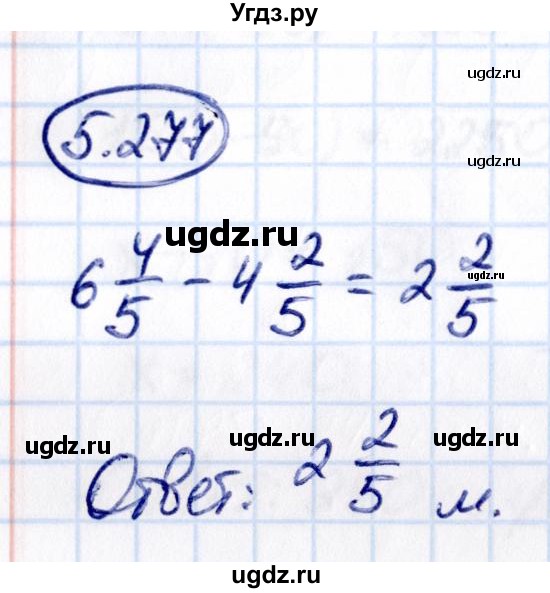 Угдз.ру
ugdz.ru
5.277
ugdz.ru
ugdz.ru
6 4/5 - 4 2/5 = 2 2/5
ugdz.ru
ugdz.ru ugdz.ru ugdz.ru
Ответ: 2 2/5 м.
ugdz.ru